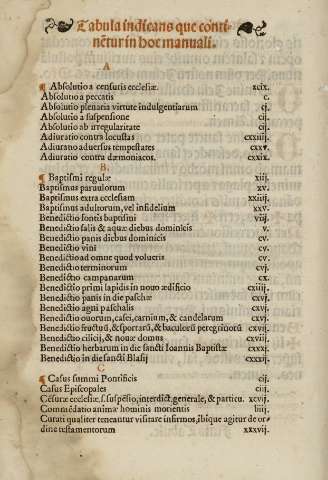 Tabula indicans que conti-
nētur in hoc manuali.
A
¶ Absolutio a censuris ecclesiæ. xcix.
Absolutio a peccatis
Absolutio plenaria virtute indulgentiarum cj.
Absolutio a suspensione cij.
Absolutio ab irregularitate cj.
Adiuratio contra locustas cxxiiij.
Adiuratio aduersus tempestates cxxv.
Adiuratio contra dæmoniacos. cxxix.
B.
¶ Baptismi regulæ xiij.
Baptismus paruulorum xv.
Baptismus extra ecclesiam xxiiij.
Baptismus adultorum, vel infidelium xxv.
Benedictio fontis baptismi viij.
Benedictio salis & aquæ diebus dominicis v.
Benedictio panis diebus dominicis cv.
Benedictio vini cv.
Benedictio ad omne quod volueris cv.
Benedictio terminorum cvj.
Benedictio campanarum cx.
Benedictio primi lapidis in nouo ædificio ciiij.
Benedictio panis in die paschæ cxvj.
Benedictio agni paschalis cxvj.
Benedictio ouorum, casei, carnium, & candelarum cxvj.
Benedictio fructuū, & sportarū, & baculorū peregrinorū cxvij.
Benedictio cilicij, & nouæ domus cxviij.
Benedictio herbarum in die sancti Ioannis Baptistæ cxxx.
Benedictio in die sancti Blasij cxxxij.
C
¶ Casus summi Pontificis cij.
Casus Episcopales cij.
Cēsuræ ecclesiæ, s. suspēsio, interdict, generale, & particu. xcvij.
Commēdatio animæ hominis morientis liiij.
Curati qualiter teneantur visitare infirmos, ibique agitur de or
dine testamentorum xxxvij.